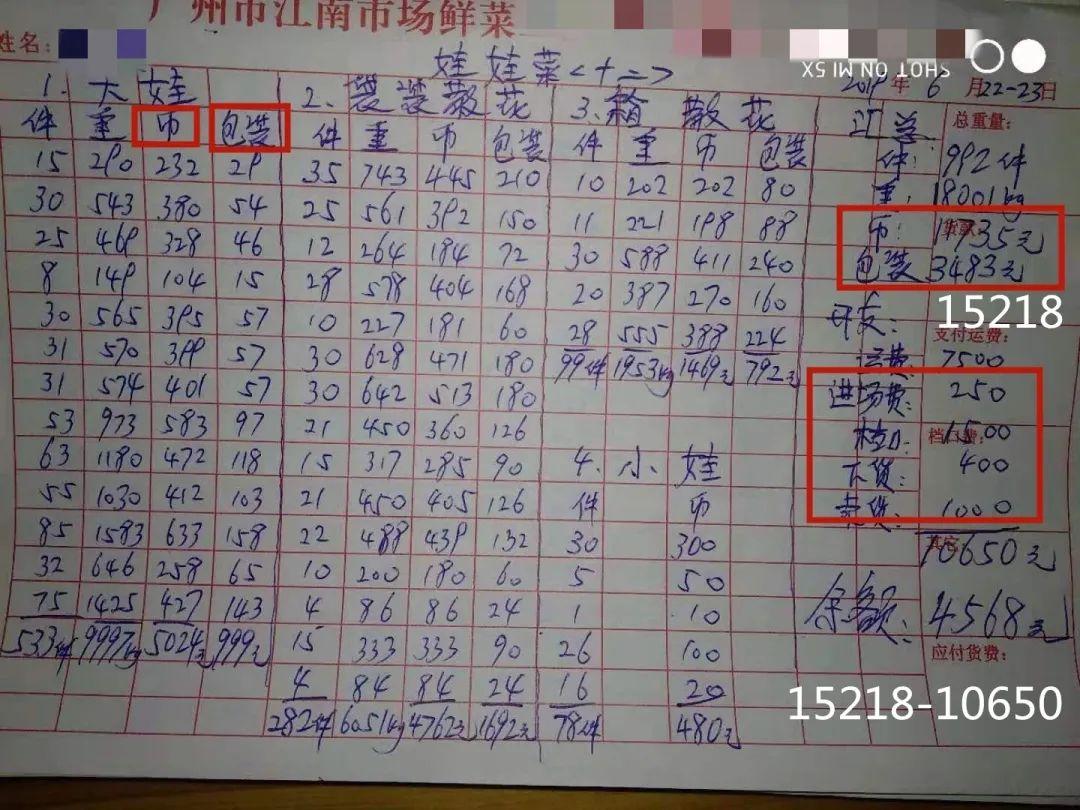 广州市江南市场鲜菜
姓名:
娃娃菜<十二>
SHOT ON MI 5X
2019年6月22-23日
1. 大娃
件 重 币 包装
15 290 232 29
30 543 380 54
25 469 328 46
8 149 104 15
30 565 395 57
31 570 399 57
31 574 401 57
53 973 583 97
63 1180 472 118
55 1030 412 103
85 1583 633 158
32 646 258 65
75 1425 427 143
533件 9997kg 5024元 999元
2. 袋装散花
件 重 币 包装
35 743 445 210
25 561 392 150
12 264 184 72
28 578 404 168
10 227 181 60
30 628 471 180
30 642 513 180
21 450 360 126
15 317 285 90
21 450 405 126
22 488 439 132
10 200 180 60
4 86 86 24
15 333 333 90
4 84 84 24
282件 6051kg 4762元 1692元
3. 箱散花
件 重 币 包装
10 202 202 80
11 221 198 88
30 588 411 240
20 387 270 160
28 555 388 224
99件 1953kg 1469元 792元
4. 小娃
件 币
30 300
5 50
1 10
26 100
16 20
78件 480元
汇总
总重量:
件: 992件
重: 18001kg
货款:
币: 11735元
包装 3483元
15218
开支:
支付运费:
运费: 7500
进场费: 250
档口费:
档口: 1500
下货: 400
卖货: 1000
其它:
10650元
余额: 4568元
应付货费:
15218-10650